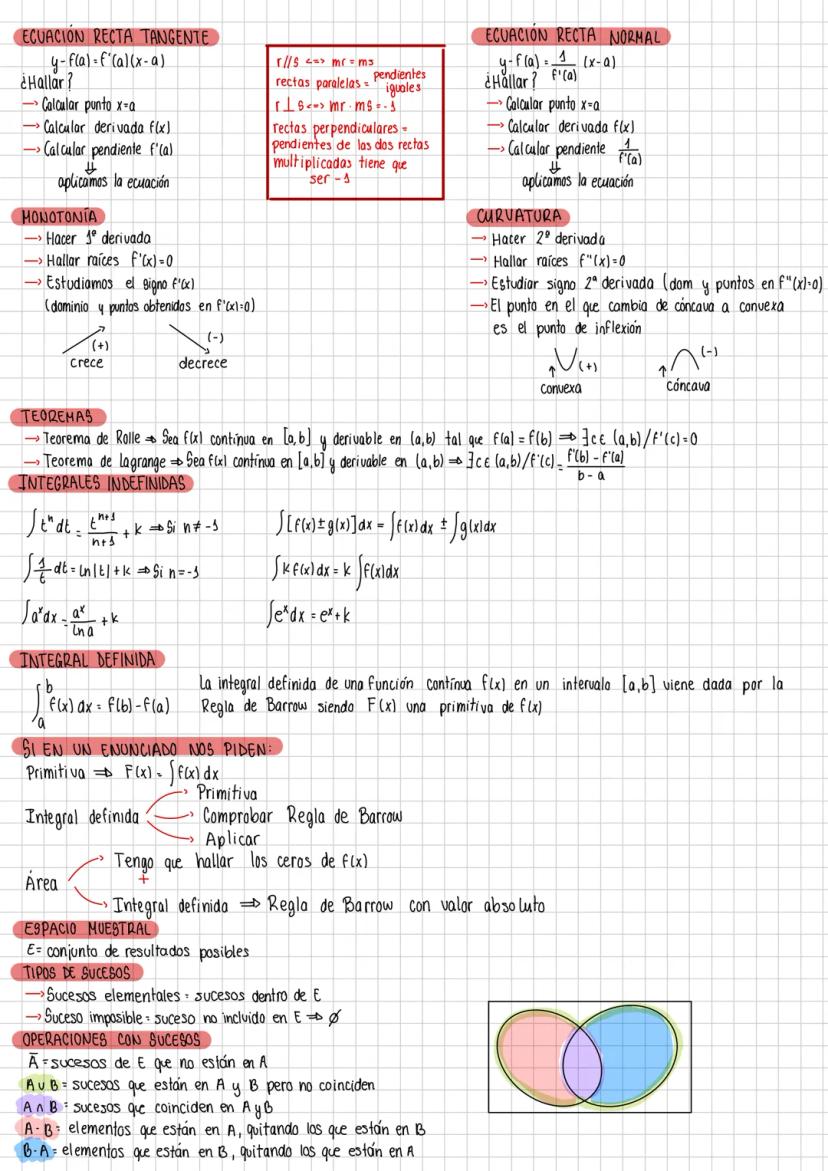 ECUACIÓN RECTA TANGENTE
y-f(a)=f'(a)(x-a)
¿Hallar?
→ Calcular punto x=a
→ Calcular derivada f(x)
→ Calcular pendiente f'(a)
⇓
aplicamos la ecuación
r//s <=> mr = ms
rectas paralelas = pendientes iguales
r⊥s <=> mr · ms = -1
rectas perpendiculares =
pendientes de las dos rectas
multiplicadas tiene que
ser -1
ECUACIÓN RECTA NORMAL
y-f(a) = 1/f'(a) (x-a)
¿Hallar?
→ Calcular punto x=a
→ Calcular derivada f(x)
→ Calcular pendiente 1/f'(a)
⇓
aplicamos la ecuación
MONOTONÍA
→ Hacer 1ª derivada
→ Hallar raíces f'(x)=0
→ Estudiamos el signo f'(x)
(dominio y puntos obtenidos en f'(x)=0)
(+) (-)
crece decrece
CURVATURA
→ Hacer 2ª derivada
→ Hallar raíces f"(x)=0
→ Estudiar signo 2ª derivada (dom y puntos en f"(x)=0)
→ El punto en el que cambia de cóncava a convexa
es el punto de inflexión
(+) (-)
convexa cóncava
TEOREMAS
→ Teorema de Rolle ⇒ Sea f(x) contínua en [a,b] y derivable en (a,b) tal que f(a) = f(b) ⇒ ∃c∈ (a,b)/f'(c)=0
→ Teorema de Lagrange ⇒ Sea f(x) contínua en [a,b] y derivable en (a,b) ⇒ ∃c∈ (a,b)/f'(c) = f'(b) - f'(a) / b - a
INTEGRALES INDEFINIDAS
∫tⁿ dt = tⁿ⁺¹/n+1 + k ⇒ Si n ≠ -1
∫[f(x)±g(x)]dx = ∫f(x)dx ± ∫g(x)dx
∫1/t dt = ln|t| + k ⇒ Si n=-1
∫k f(x)dx = k ∫f(x)dx
∫aˣdx = aˣ/ln a + k
∫eˣdx = eˣ+k
INTEGRAL DEFINIDA
∫ₐᵇ f(x) dx = f(b)-f(a)
La integral definida de una función contínua f(x) en un intervalo [a,b] viene dada por la
Regla de Barrow siendo F(x) una primitiva de f(x)
SI EN UN ENUNCIADO NOS PIDEN:
Primitiva ⇒ F(x) = ∫f(x) dx
Integral definida
→ Primitiva
→ Comprobar Regla de Barrow
→ Aplicar
Área
→ Tengo que hallar los ceros de f(x)
+
→ Integral definida ⇒ Regla de Barrow con valor absoluto
ESPACIO MUESTRAL
E= conjunto de resultados posibles
TIPOS DE SUCESOS
→ Sucesos elementales = sucesos dentro de E
→ Suceso imposible = suceso no incluido en E ⇒ ∅
OPERACIONES CON SUCESOS
Ā = sucesos de E que no están en A
A∪B = sucesos que están en A y B pero no coinciden
A∩B = sucesos que coinciden en A y B
A-B = elementos que están en A, quitando los que están en B
B-A = elementos que están en B, quitando los que están en A